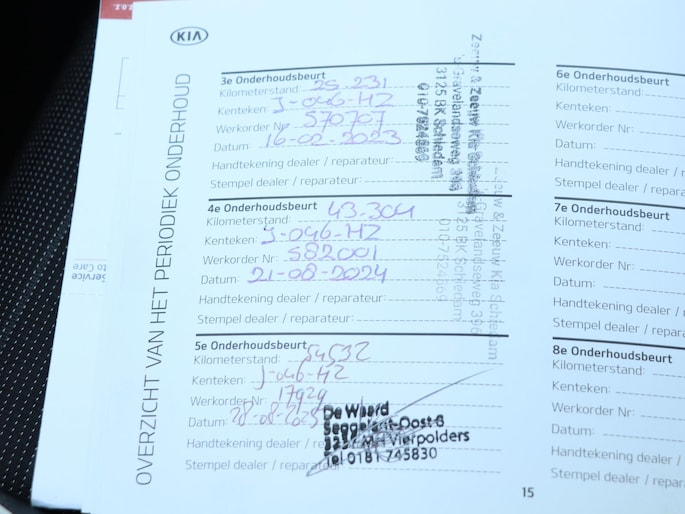 KIA
OVERZICHT VAN HET PERIODIEK ONDERHOUD
3e Onderhoudsbeurt
Kilometerstand: 25.231
Kenteken: J-046-HZ
Werkorder Nr: 570707
Datum: 16-02-2023
Handtekening dealer / reparateur:
Stempel dealer / reparateur:
Zeeuw & Zeeuw Kia Schiedam
's Gravelandseweg 396
3125 BK Schiedam
4e Onderhoudsbeurt
Kilometerstand: 43.304
Kenteken: J-046-HZ
Werkorder Nr: 582001
Datum: 21-08-2024
Handtekening dealer / reparateur:
Stempel dealer / reparateur:
Zeeuw & Zeeuw Kia Schiedam
's Gravelandseweg 396
3125 BK Schiedam
5e Onderhoudsbeurt
Kilometerstand: 54532
Kenteken: J-046-HZ
Werkorder Nr: 17929
Datum: 28-08-2025
Handtekening dealer / re
Stempel dealer / reparateur
De Waard
Seggelant-Oost 6
3237 MH Vierpolders
Tel 0181 745830
6e Onderhoudsbeurt
Kilometerstand:
Kenteken:
Werkorder Nr:
Datum:
Handtekening dealer / r
Stempel dealer / repara
7e Onderhoudsbeurt
Kilometerstand:
Kenteken:
Werkorder Nr:
Datum:
Handtekening dealer /
Stempel dealer / repar
8e Onderhoudsbeurt
Kilometerstand:
Kenteken:
Werkorder Nr:
Datum:
Handtekening dealer /
Stempel dealer / repa
15
Service
to Care